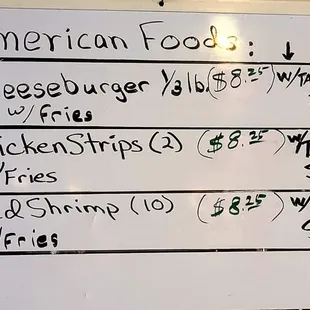 merican Foods: ↓
eeseburger 1/3 lb. ($8.25) W/TA
w/ Fries
ickenStrips (2) ($8.25) W/T
/Fries
d Shrimp (10) ($8.25) W/
/Fries